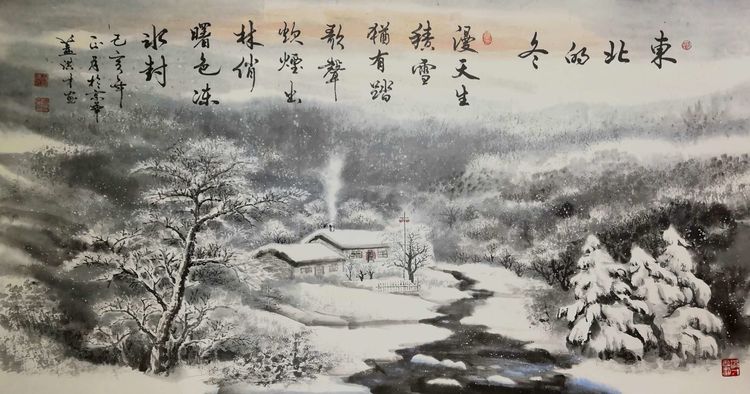 東北的冬
漫天生
積雪
猶有踏
歌聲
炊煙出
林俏
曙色凍
冰封
己亥年
正月於